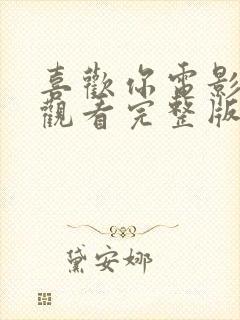 喜歡你電影
觀看完整版
黛安娜